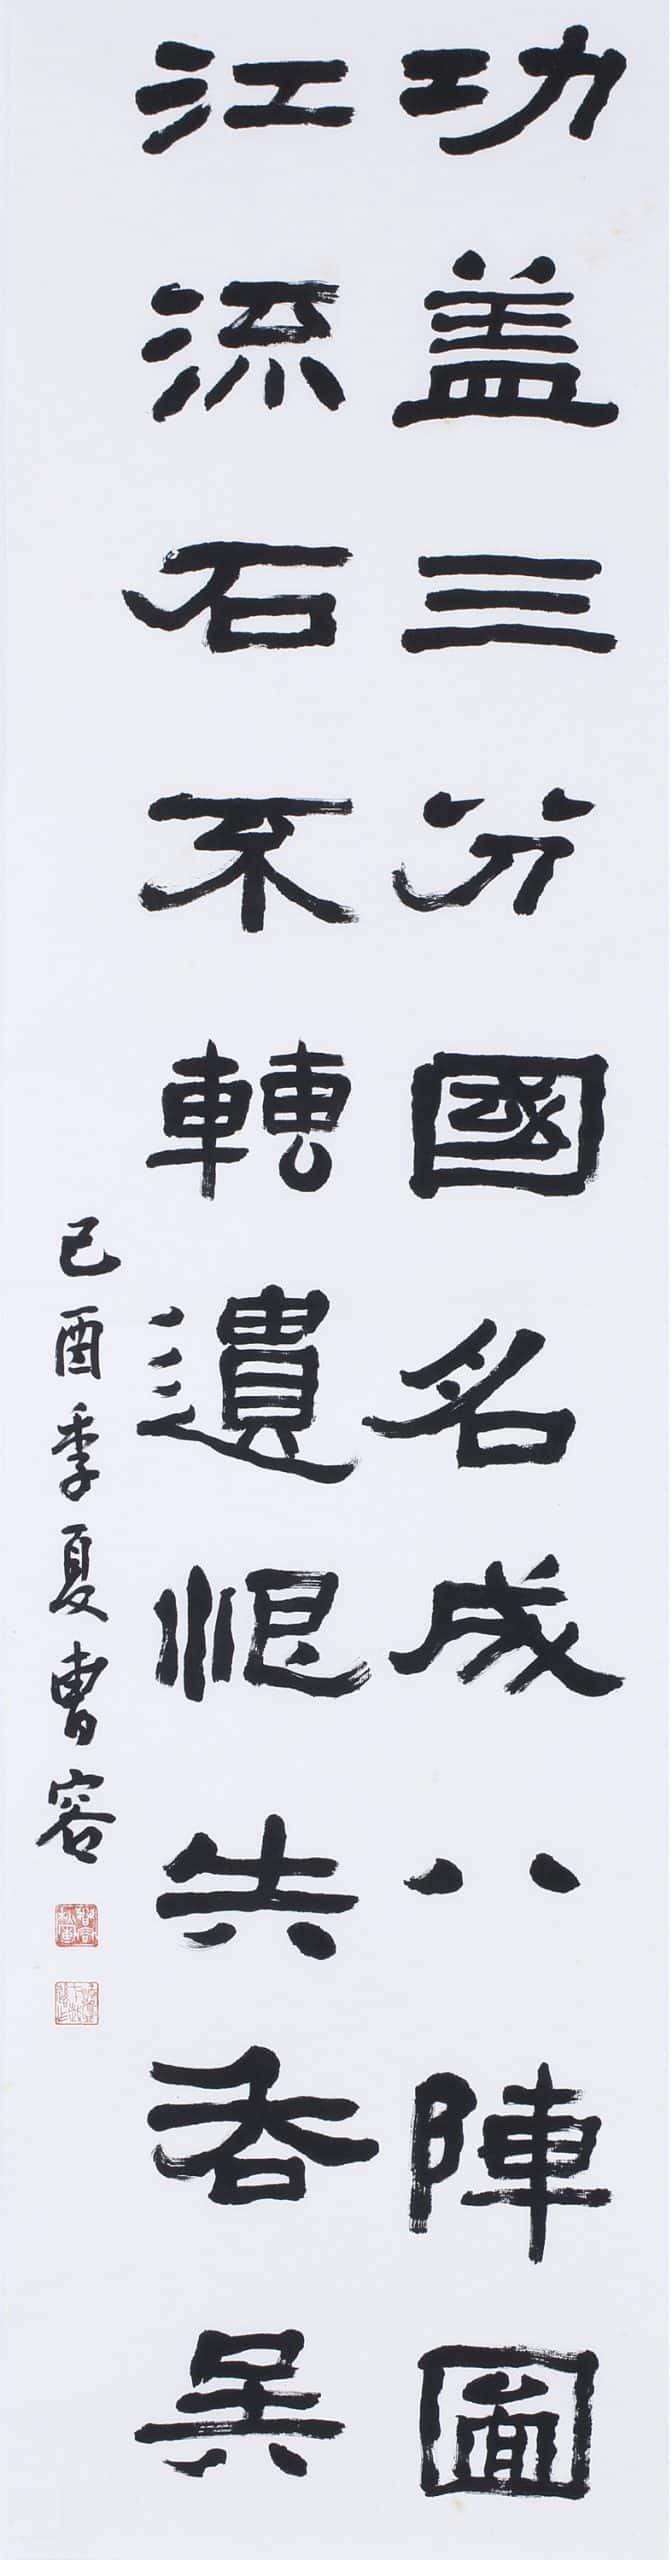 功盖三分國名成八陣圖
江流石不轉遺恨失吞吴
己酉季夏曹容